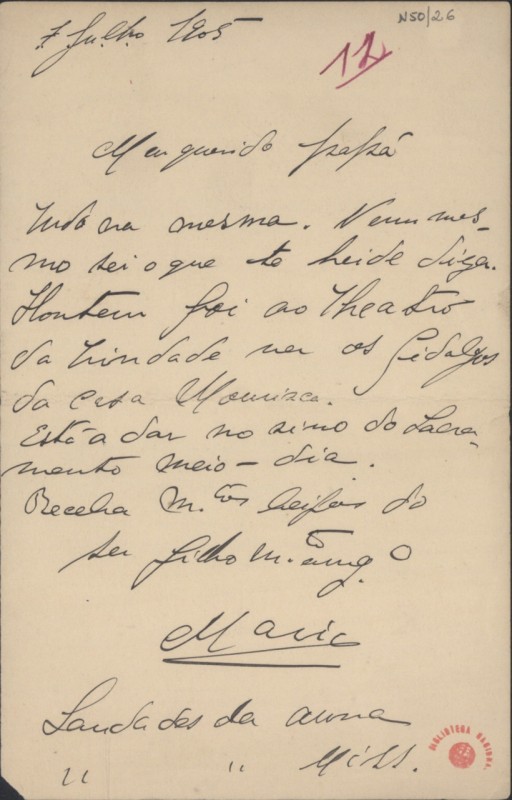 N50/26
7 Julho 1905
12
Meu querido papá
Tudo na mesma. Nem mes-
mo sei o que te heide dizer.
Hontem foi ao Theatro
da Trindade ver os Fidalgos
da Casa Mourisca.
Está a dar no sino do Sacra-
mento meio-dia.
Receba m.tos beijos do
seu filho m.to amg.o
Mario
Saudades da avona
" " Miss.
BIBLIOTECA NACIONAL